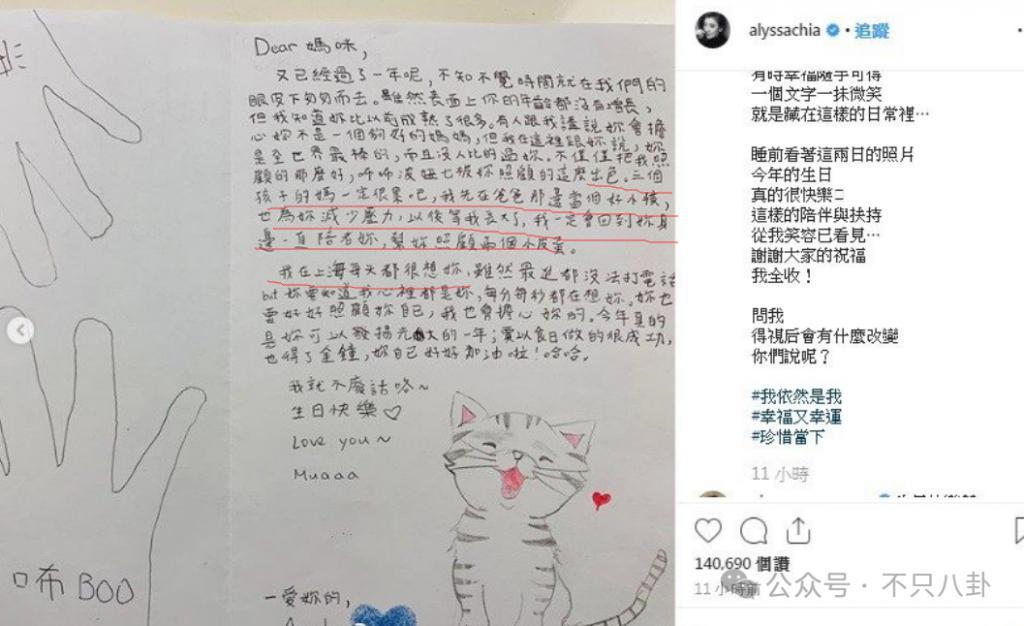 Dear 媽咪,
又已經過了一年呢,不知不覺時間就在我們的
眼皮下匆匆而去。雖然表面上你的年齡都沒有增長,
但我知道妳比以前成熟了很多。有人跟我講說妳會擔
心妳不是一個夠好的媽媽,但我在這裡跟妳說,妳
是全世界最棒的,而且沒人比的過妳。不僅僅把我照
顧的那麼好,咘咘波妞也被妳照顧的這麼出色。三個
孩子的媽一定很累吧,我先在爸爸那邊當個好小孩,
也為妳減少壓力,以後等我長大了,我一定會回到妳身
邊一直陪著妳,幫妳照顧兩個小皮蛋。
我在上海每天都很想妳,雖然最近都沒法打電話
but 妳要知道我心裡都是妳,每分每秒都在想妳。妳也
要好好照顧妳自己,我也會擔心妳的。今年真的
是妳可以發揚光大的一年;愛以食日做的很成功,
也得了金鐘,妳自己好好加油啦!哈哈。
我就不廢話咯~
生日快樂♡
Love you~
Muaaa
一愛妳的,
咘 BOO
alyssachia · 追蹤
有時幸福隨手可得
一個文字一抹微笑
就是藏在這樣的日常裡…
睡前看著這兩日的照片
今年的生日
真的很快樂□
這樣的陪伴與扶持
從我笑容已看見…
謝謝大家的祝福
我全收!
問我
得視后會有什麼改變
你們說呢?
#我依然是我
#幸福又幸運
#珍惜當下
11 小時
140,690 個讚
11 小時前
公众号 · 不只八卦